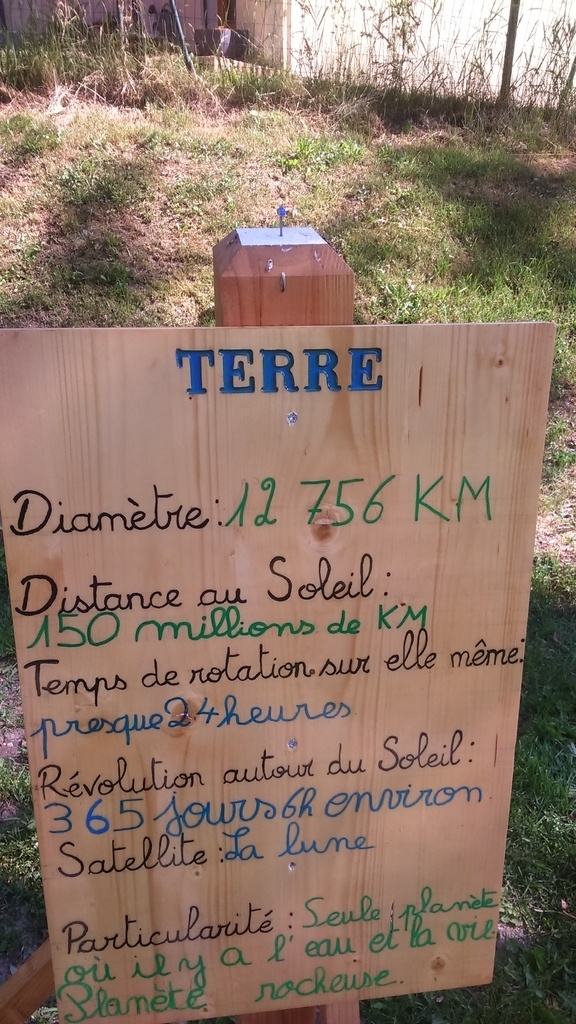 TERRE
Diamètre: 12 756 KM
Distance au Soleil:
150 millions de KM
Temps de rotation sur elle même:
presque 24 heures
Révolution autour du Soleil:
365 jours 6h environ
Satellite: La lune
Particularité: Seule planète
où il y a l'eau et la vie
Planète rocheuse.